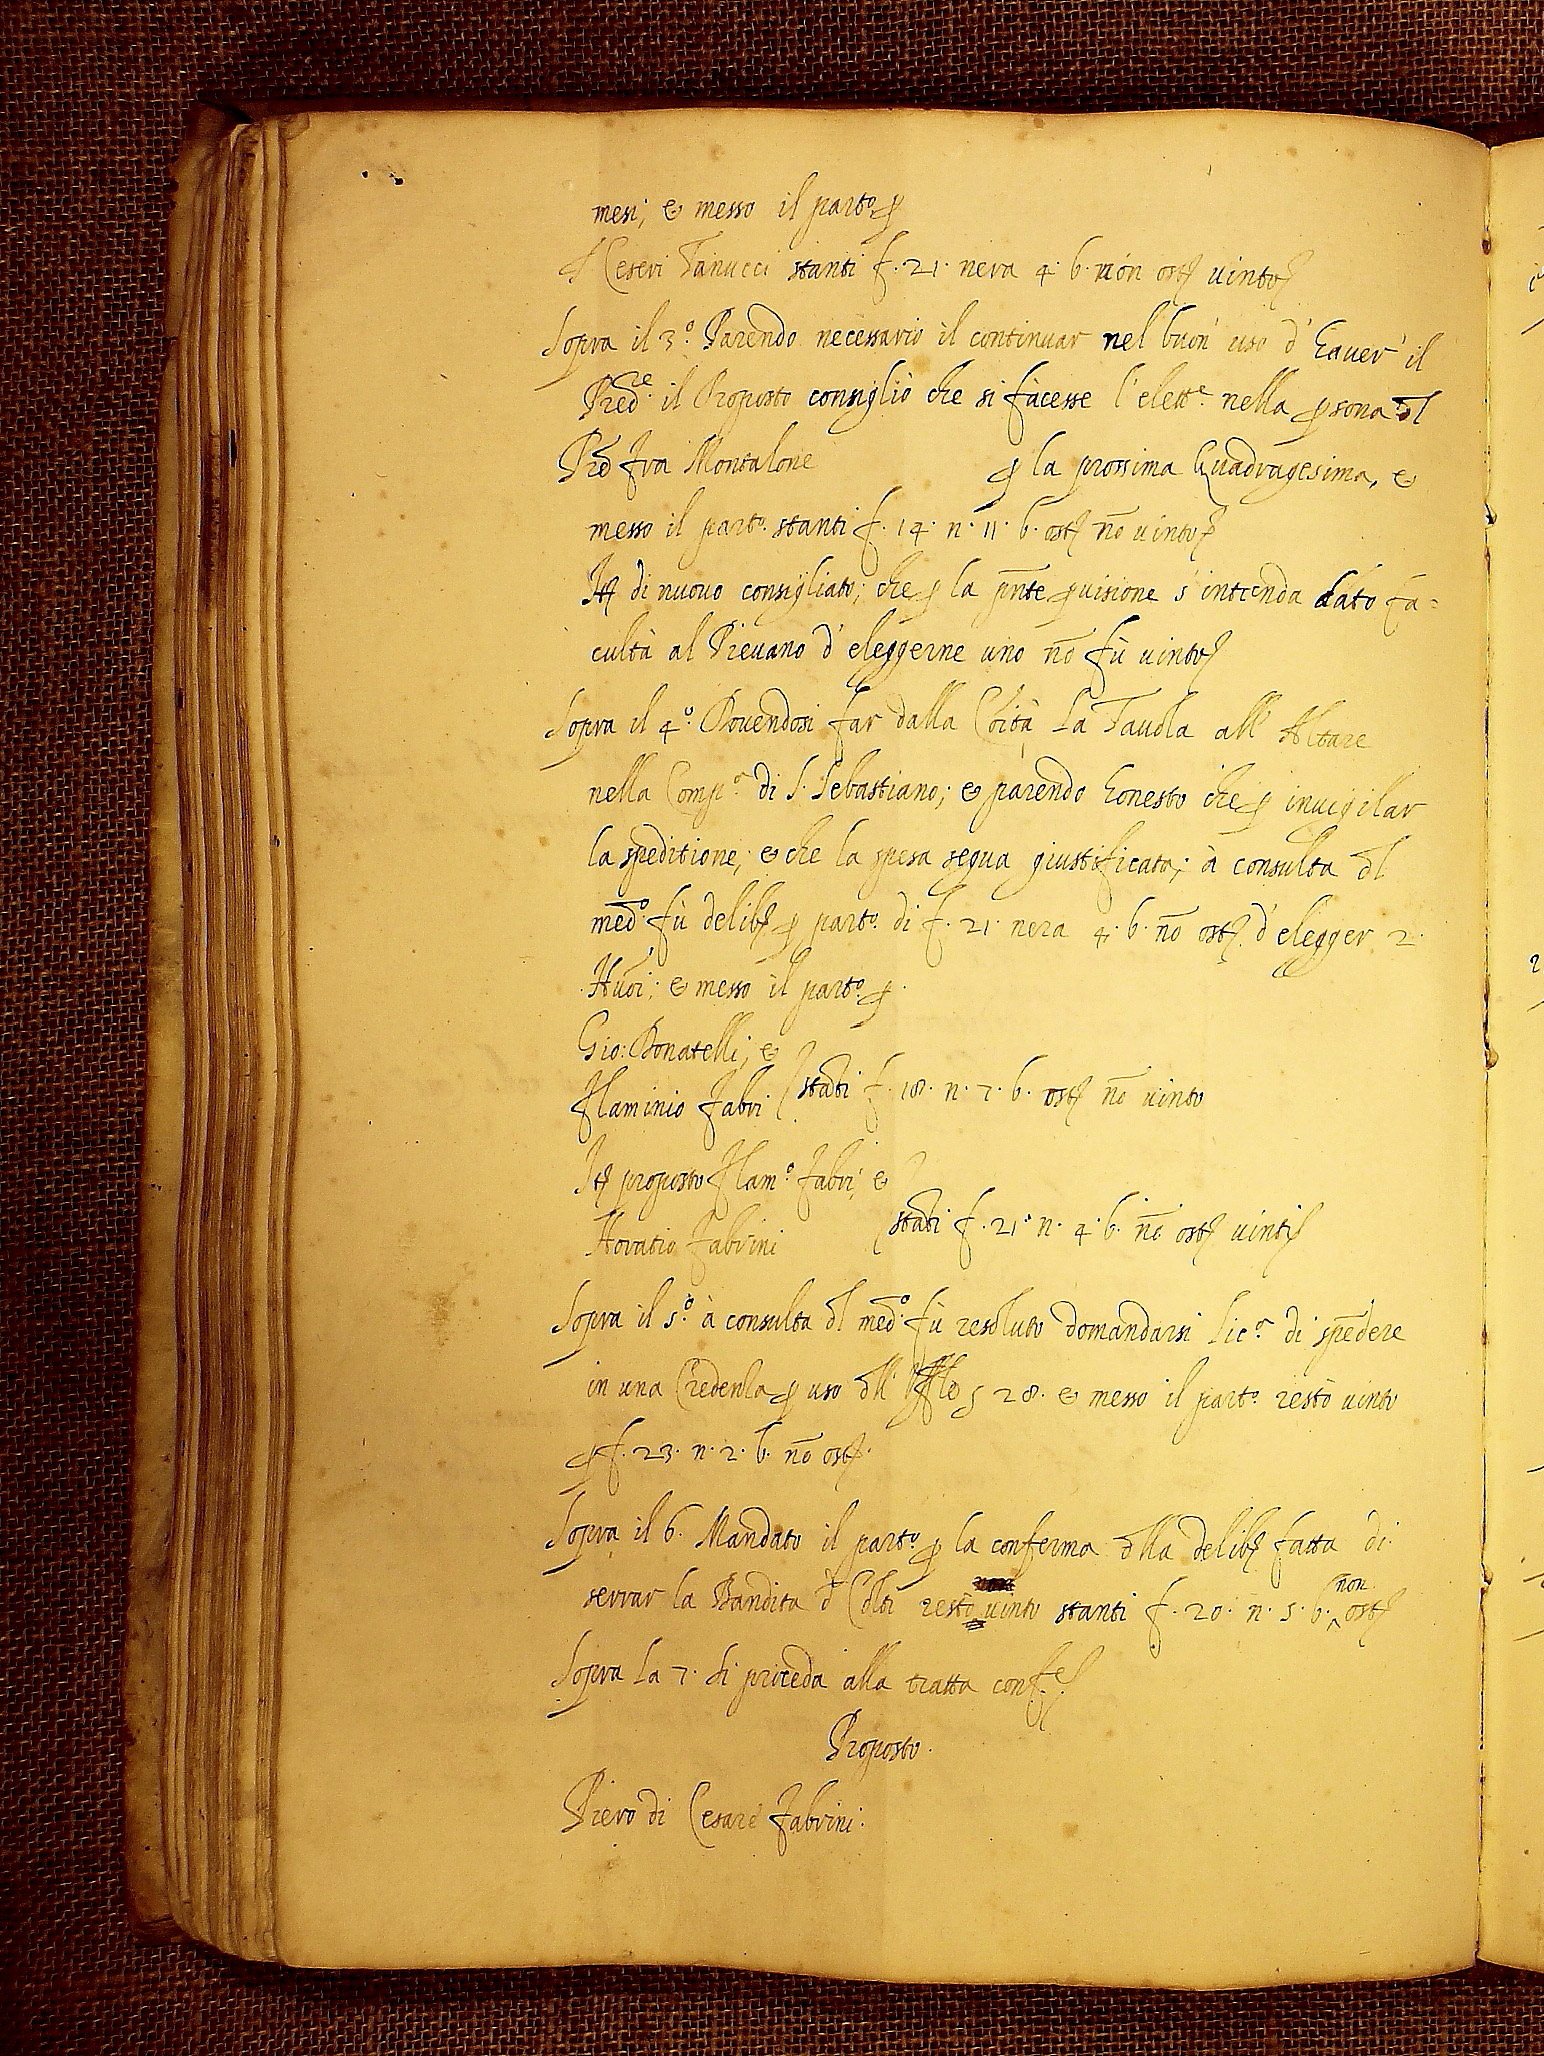 mesi; & messo il parto. p
Ceseri Fanucci stanti f. 21. nera 4. b. non ost. uinto
Sopra il 3.º Parendo necessario il continuar nel buon' uso d' hauer' il
Predre. il Proposto consigliò che si facesse l' elette. nella psona dl
Pre fra Montalone p la prossima Quadragesima, &
messo il parto. stanti f. 14. n. 11. b. ost. nō uinto
It di nuovo consigliato; che p la pnte puisione s' intenda dato fa=
cultà al Pieuano d' eleggerne uno nō fù uinto
Sopra il 4.º Douendosi far dalla Coità la Tauola all' Altare
nella Compa. di S. Sebastiano; & parendo honesto che p inuigilar
la speditione; & che la spesa segua giustificata; à consulta dl
medo. fù delib. p parto. di f. 21. nera 4. b. nō ost. d' elegger 2.
Huoi; & messo il parto. p.
Gio: Donatelli; &
Flaminio Fabri stati f. 18. n. 7. b. ost. nō uinto
It proposto Flamo. Fabri; &
Horatio Fabrini stati f. 21. n. 4. b. nō ost. uinti
Sopra il 5.º à consulta dl medo. fù resoluto domandarsi lica. di spēdere
in una Credenza p uso dll' 28. & messo il parto. restò uinto
p f. 23. n. 2. b. nō ost.
Sopra il 6. Mandato il parto. p la conferma dlla delib. fatta di
serrar la Bandita d Colti restò uinto stanti f. 20. n. 5. b. non ost.
Sopra la 7. si proceda alla tratta conf.
Proposto.
Piero di Cesare Fabrini.